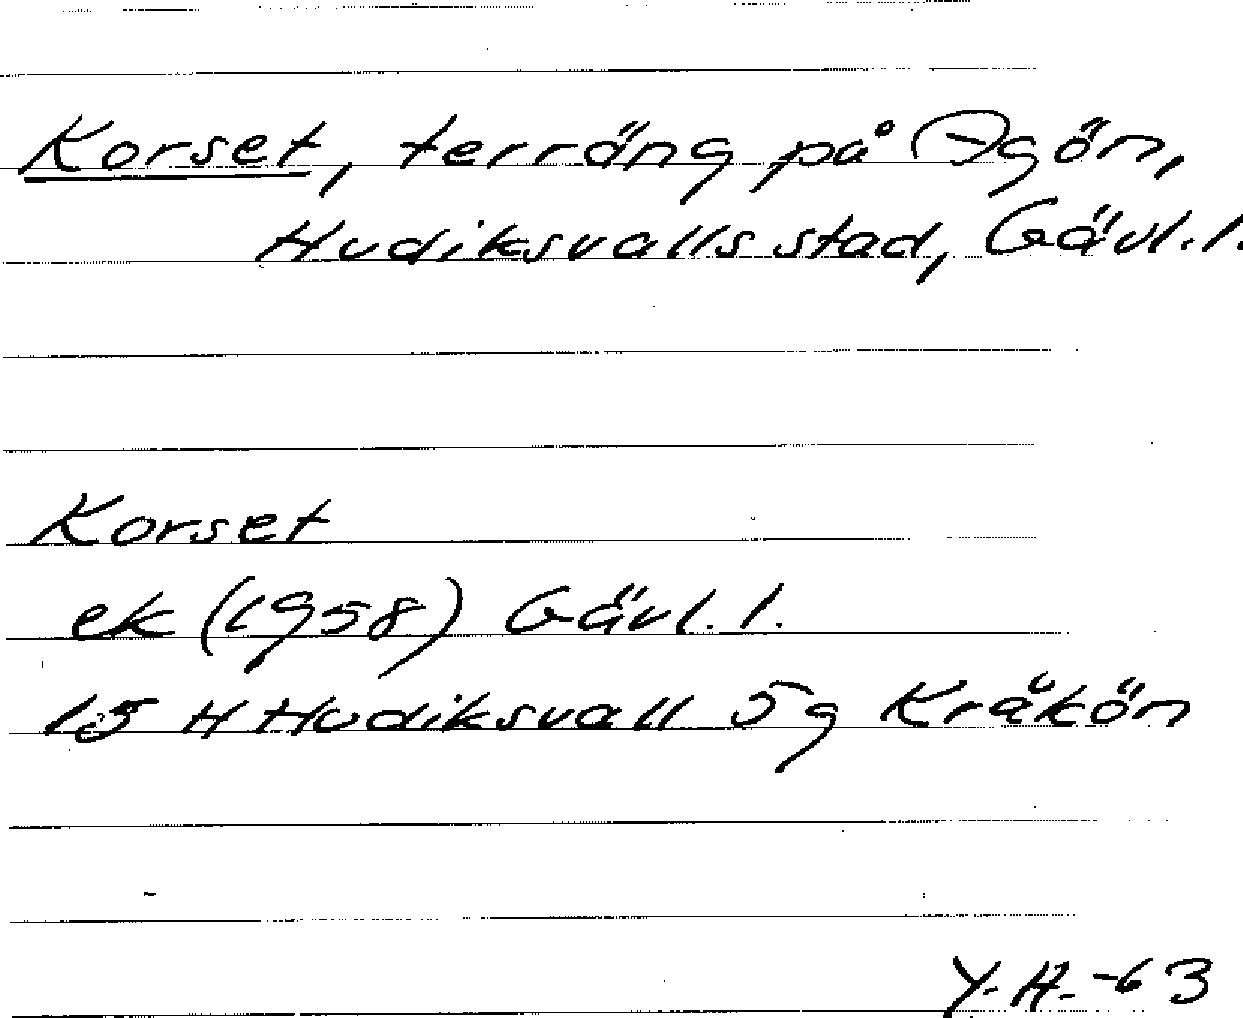 Korset, terräng på Agön,
Hudiksvalls stad, Gävl. l.
Korset
ek (1958) Gävl. l.
15 H Hudiksvall 5g Kråkön
Y. H. -63